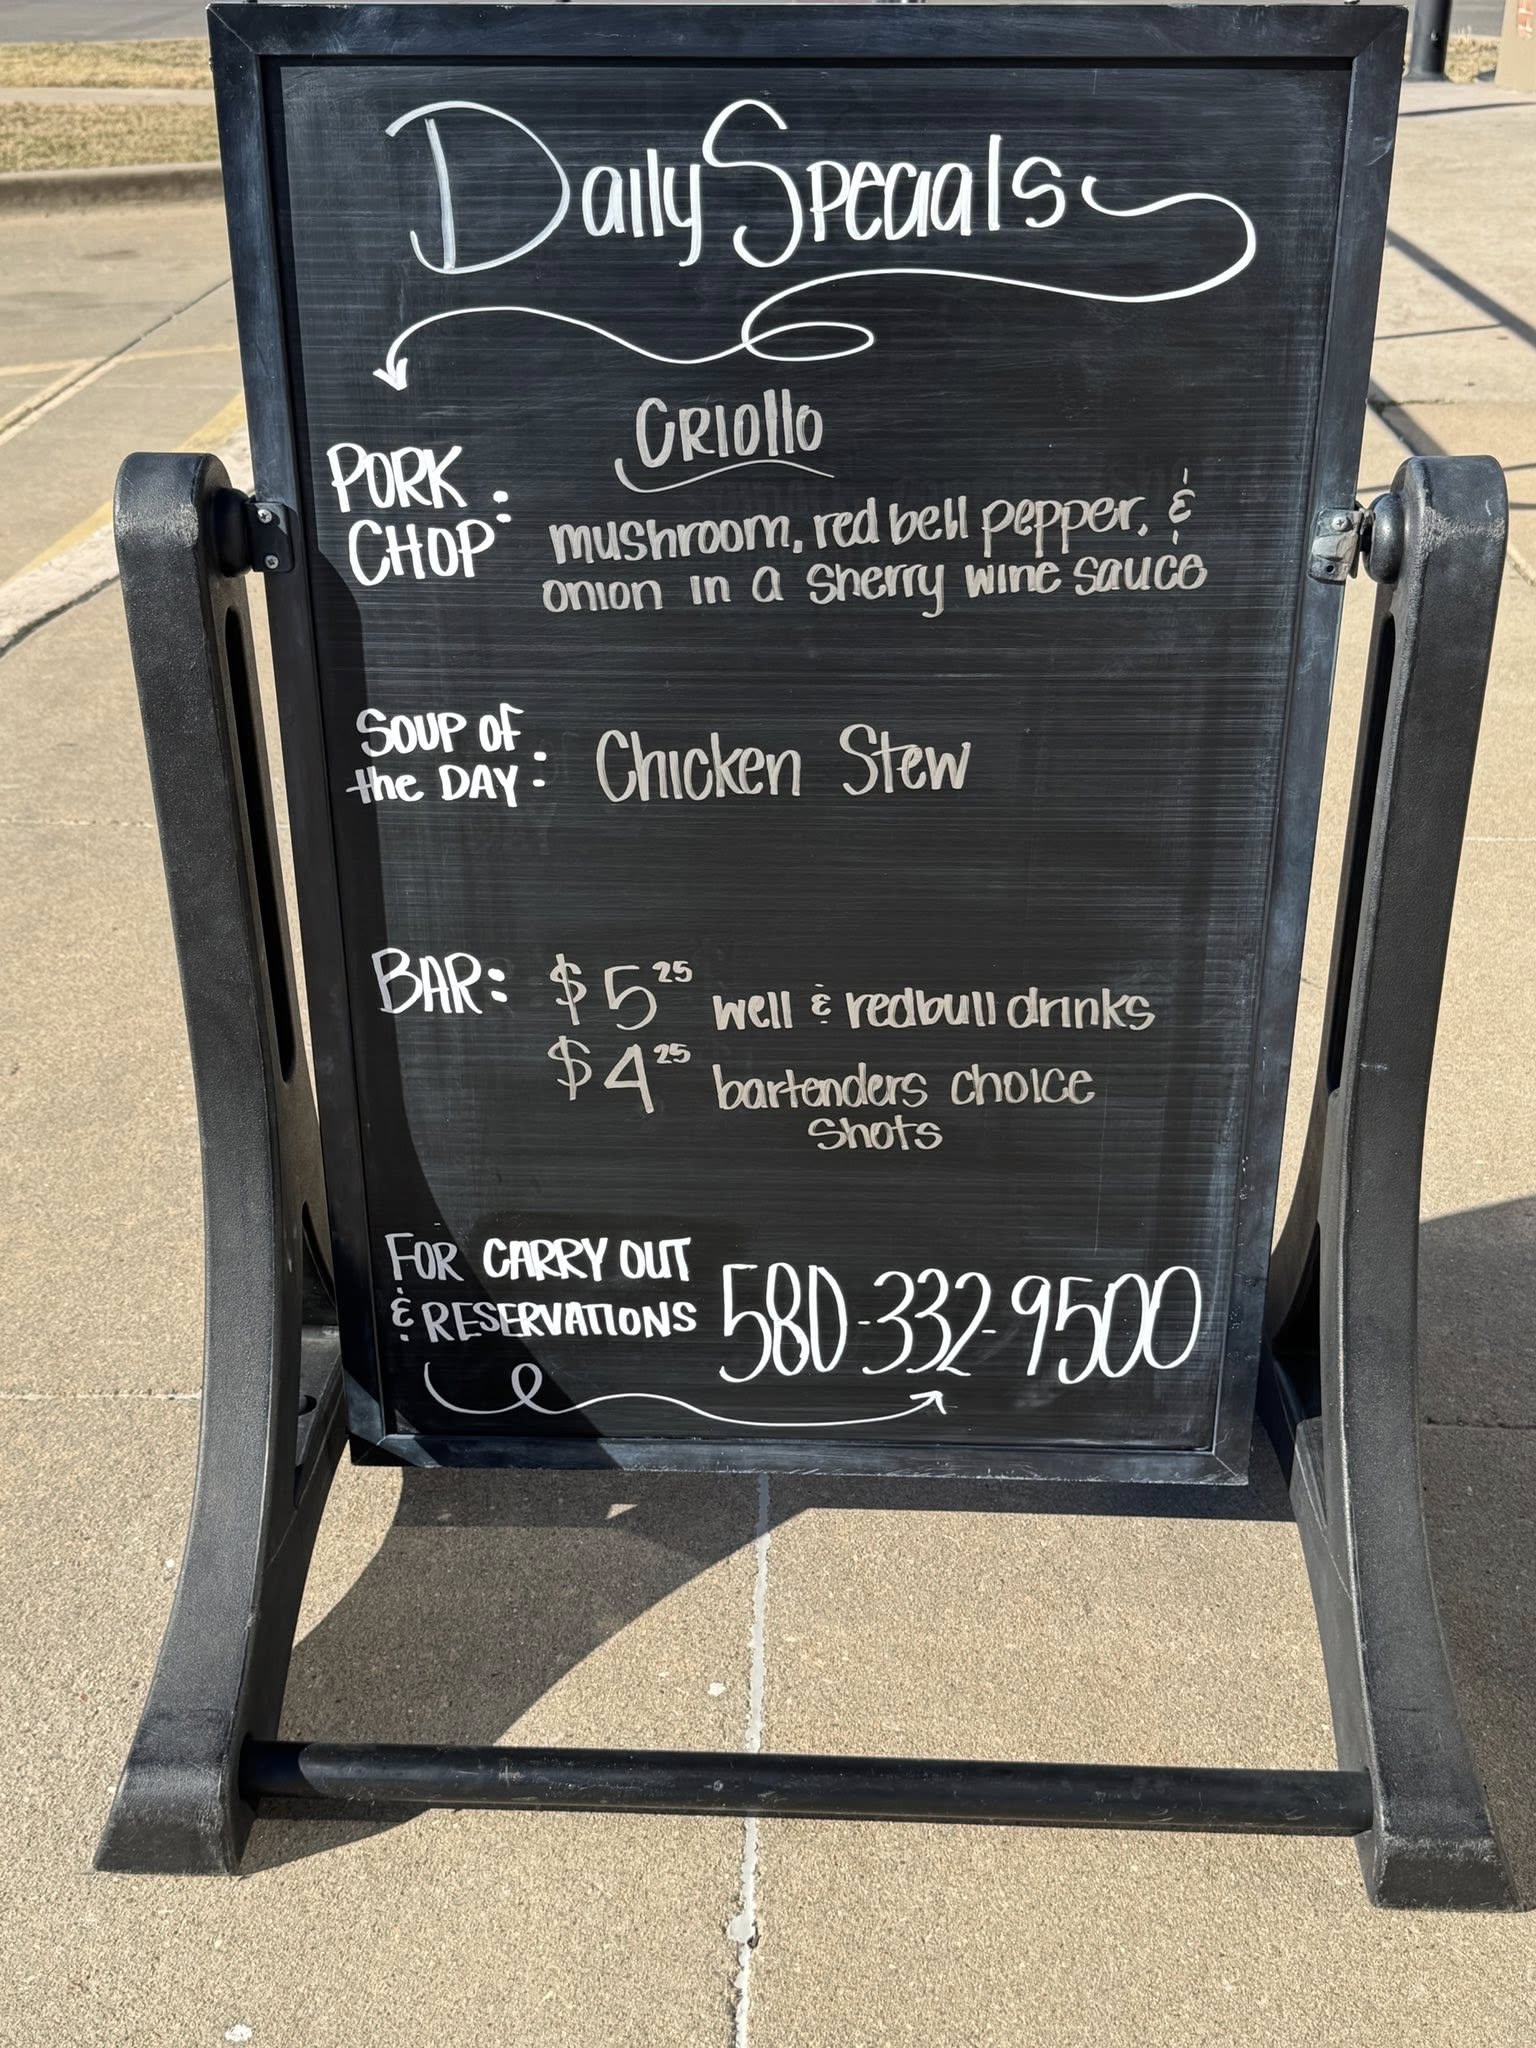 Daily Specials
Criollo
PORK CHOP:
mushroom, red bell pepper, &
onion in a sherry wine sauce
SOUP OF
the DAY:
Chicken Stew
BAR: $5.25 well & redbull drinks
$4.25 bartenders choice
shots
FOR CARRY OUT
& RESERVATIONS
580-332-9500